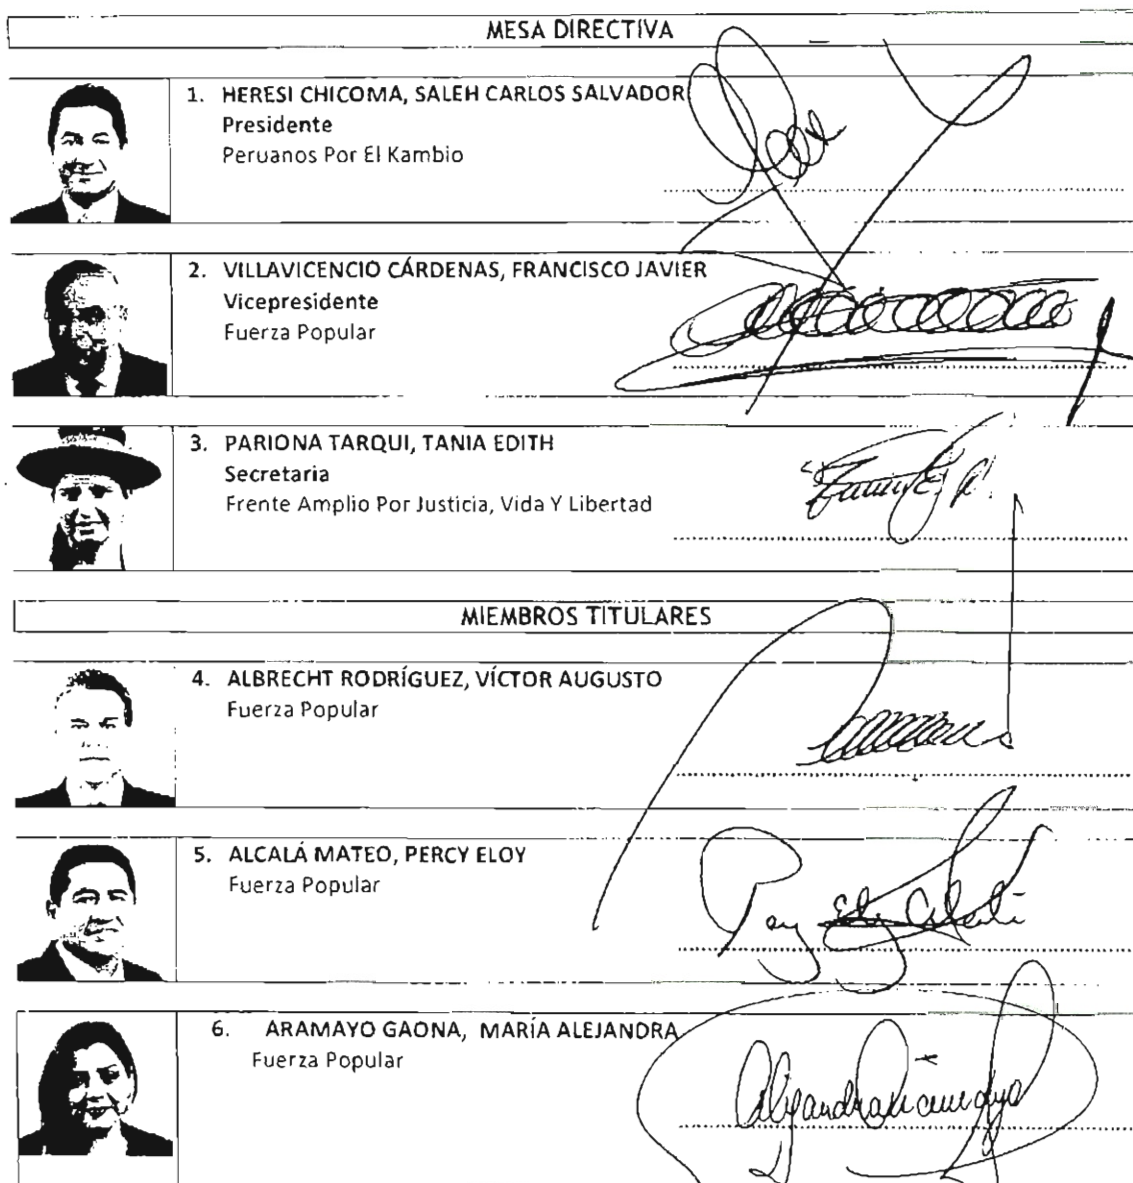 MESA DIRECTIVA
1. HERESI CHICOMA, SALEH CARLOS SALVADOR
Presidente
Peruanos Por El Kambio
2. VILLAVICENCIO CÁRDENAS, FRANCISCO JAVIER
Vicepresidente
Fuerza Popular
3. PARIONA TARQUI, TANIA EDITH
Secretaria
Frente Amplio Por Justicia, Vida Y Libertad
MIEMBROS TITULARES
4. ALBRECHT RODRÍGUEZ, VÍCTOR AUGUSTO
Fuerza Popular
5. ALCALÁ MATEO, PERCY ELOY
Fuerza Popular
6. ARAMAYO GAONA, MARÍA ALEJANDRA
Fuerza Popular